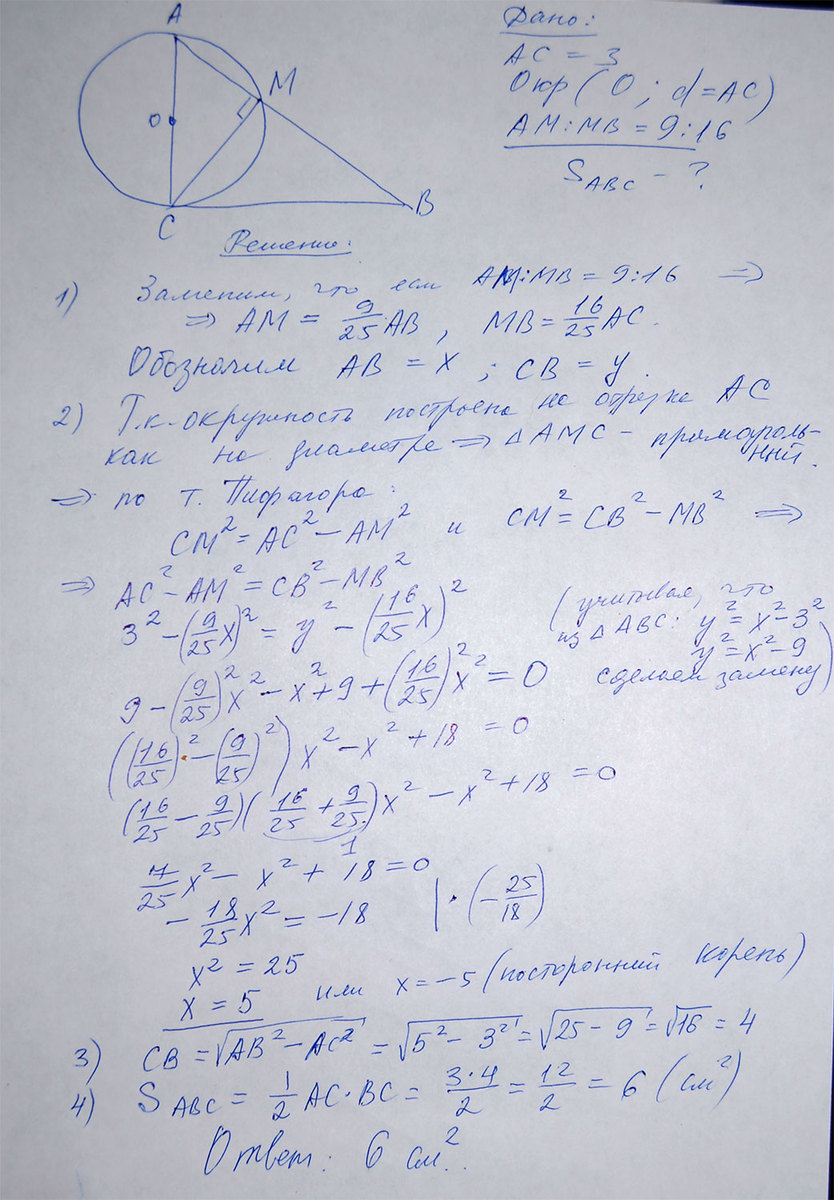 A
M
O
C
B
Дано:
AC = 3
Окр (O; d=AC)
AM:MB = 9:16
S_ABC - ?
Решение:
1) Заметим, что если AM:MB = 9:16 ⇒
⇒ AM = 9/25 AB, MB = 16/25 AC.
Обозначим AB = x; CB = y.
2) Т.к. окружность построена на отрезке AC
как на диаметре ⇒ △AMC - прямоуголь-
ный.
⇒ по т. Пифагора:
CM² = AC² - AM² и CM² = CB² - MB² ⇒
⇒ AC² - AM² = CB² - MB²
3² - (9/25 x)² = y² - (16/25 x)²
(учитывая, что
из △ABC: y² = x² - 3²
y² = x² - 9
сделаем замену)
9 - (9/25)² x² - x² + 9 + (16/25)² x² = 0
((16/25)² - (9/25)²) x² - x² + 18 = 0
(16/25 - 9/25)(16/25 + 9/25) x² - x² + 18 = 0
1
7/25 x² - x² + 18 = 0
- 18/25 x² = -18 | · (-25/18)
x² = 25
x = 5 или x = -5 (посторонний корень)
3) CB = √(AB² - AC²) = √(5² - 3²) = √(25 - 9) = √16 = 4
4) S_ABC = 1/2 AC · BC = 3·4/2 = 12/2 = 6 (см²)
Ответ: 6 см².